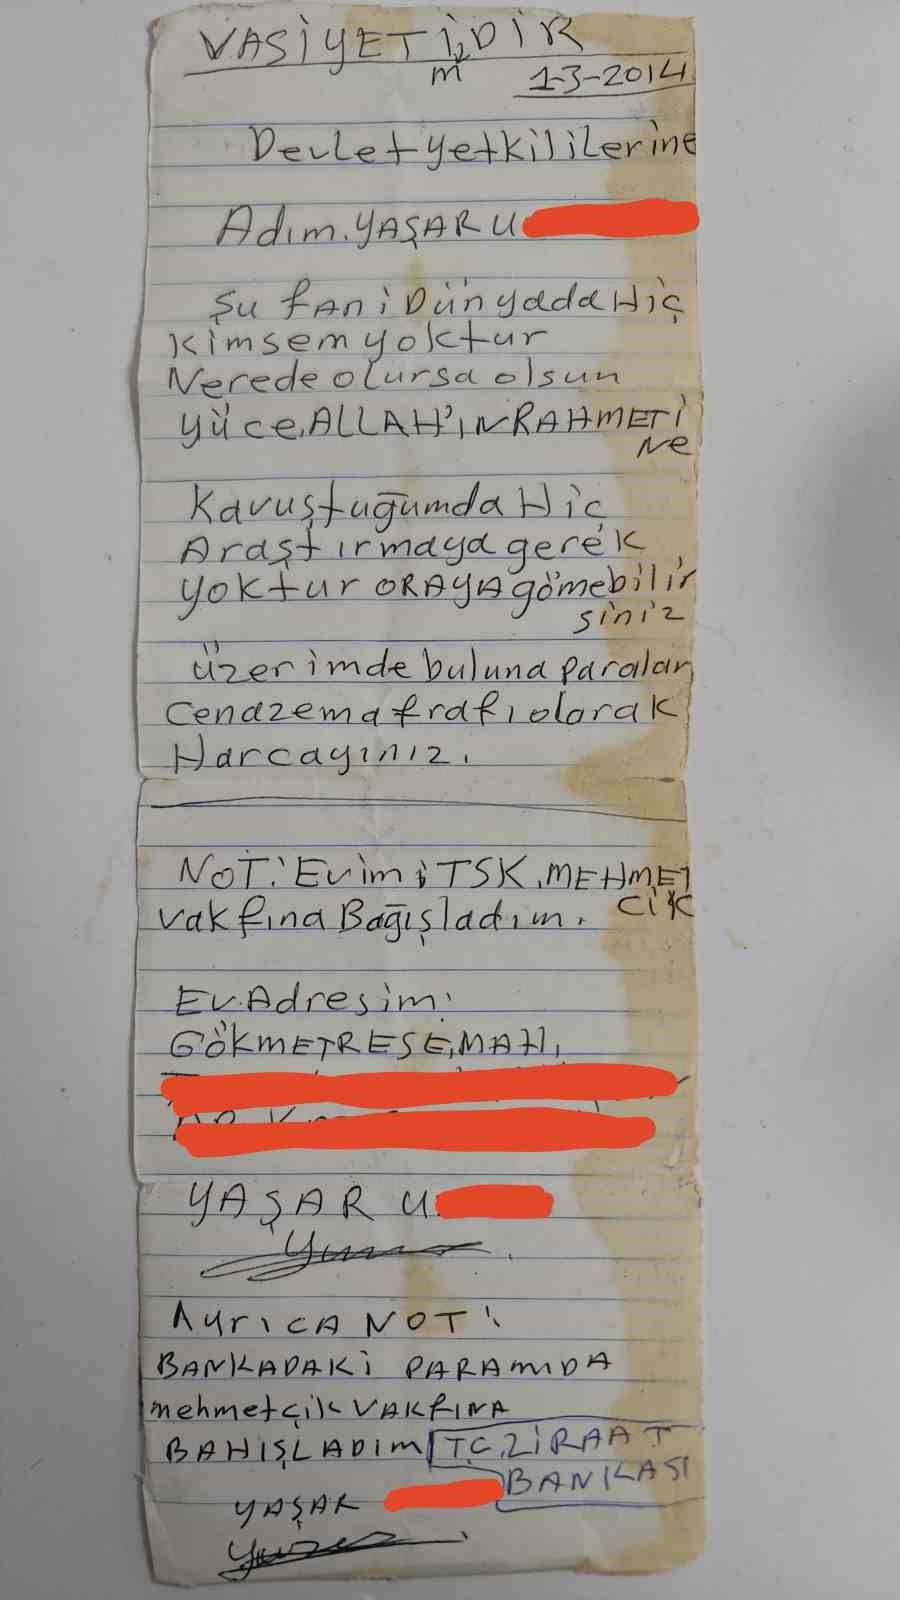 VASİYETİMDİR
1-3-2014
Devlet yetkililerine
Adım. YAŞAR U
Şu fani Dünyada Hiç
Kimsem yoktur
Nerede olursa olsun
yüce, ALLAH'IN RAHMETİ
NE
Kavuştuğumda Hiç
Araştırmaya gerek
yoktur ORAYA gömebilir
siniz
üzerimde buluna paraları
Cenazema frafı olarak
Harcayınız.
NOT: Evimi TSK. MEHMET
CİK
vakfına Bağışladım.
Ev. Adresim:
GÖKMETRESE, MAH,
YAŞAR U
Ayrıca NOT:
BANKADAKİ PARAMIDA
mehmetçik VAKFINA
BAHIŞLADIM T.C. ZİRAAT
BANKASI
YAŞAR